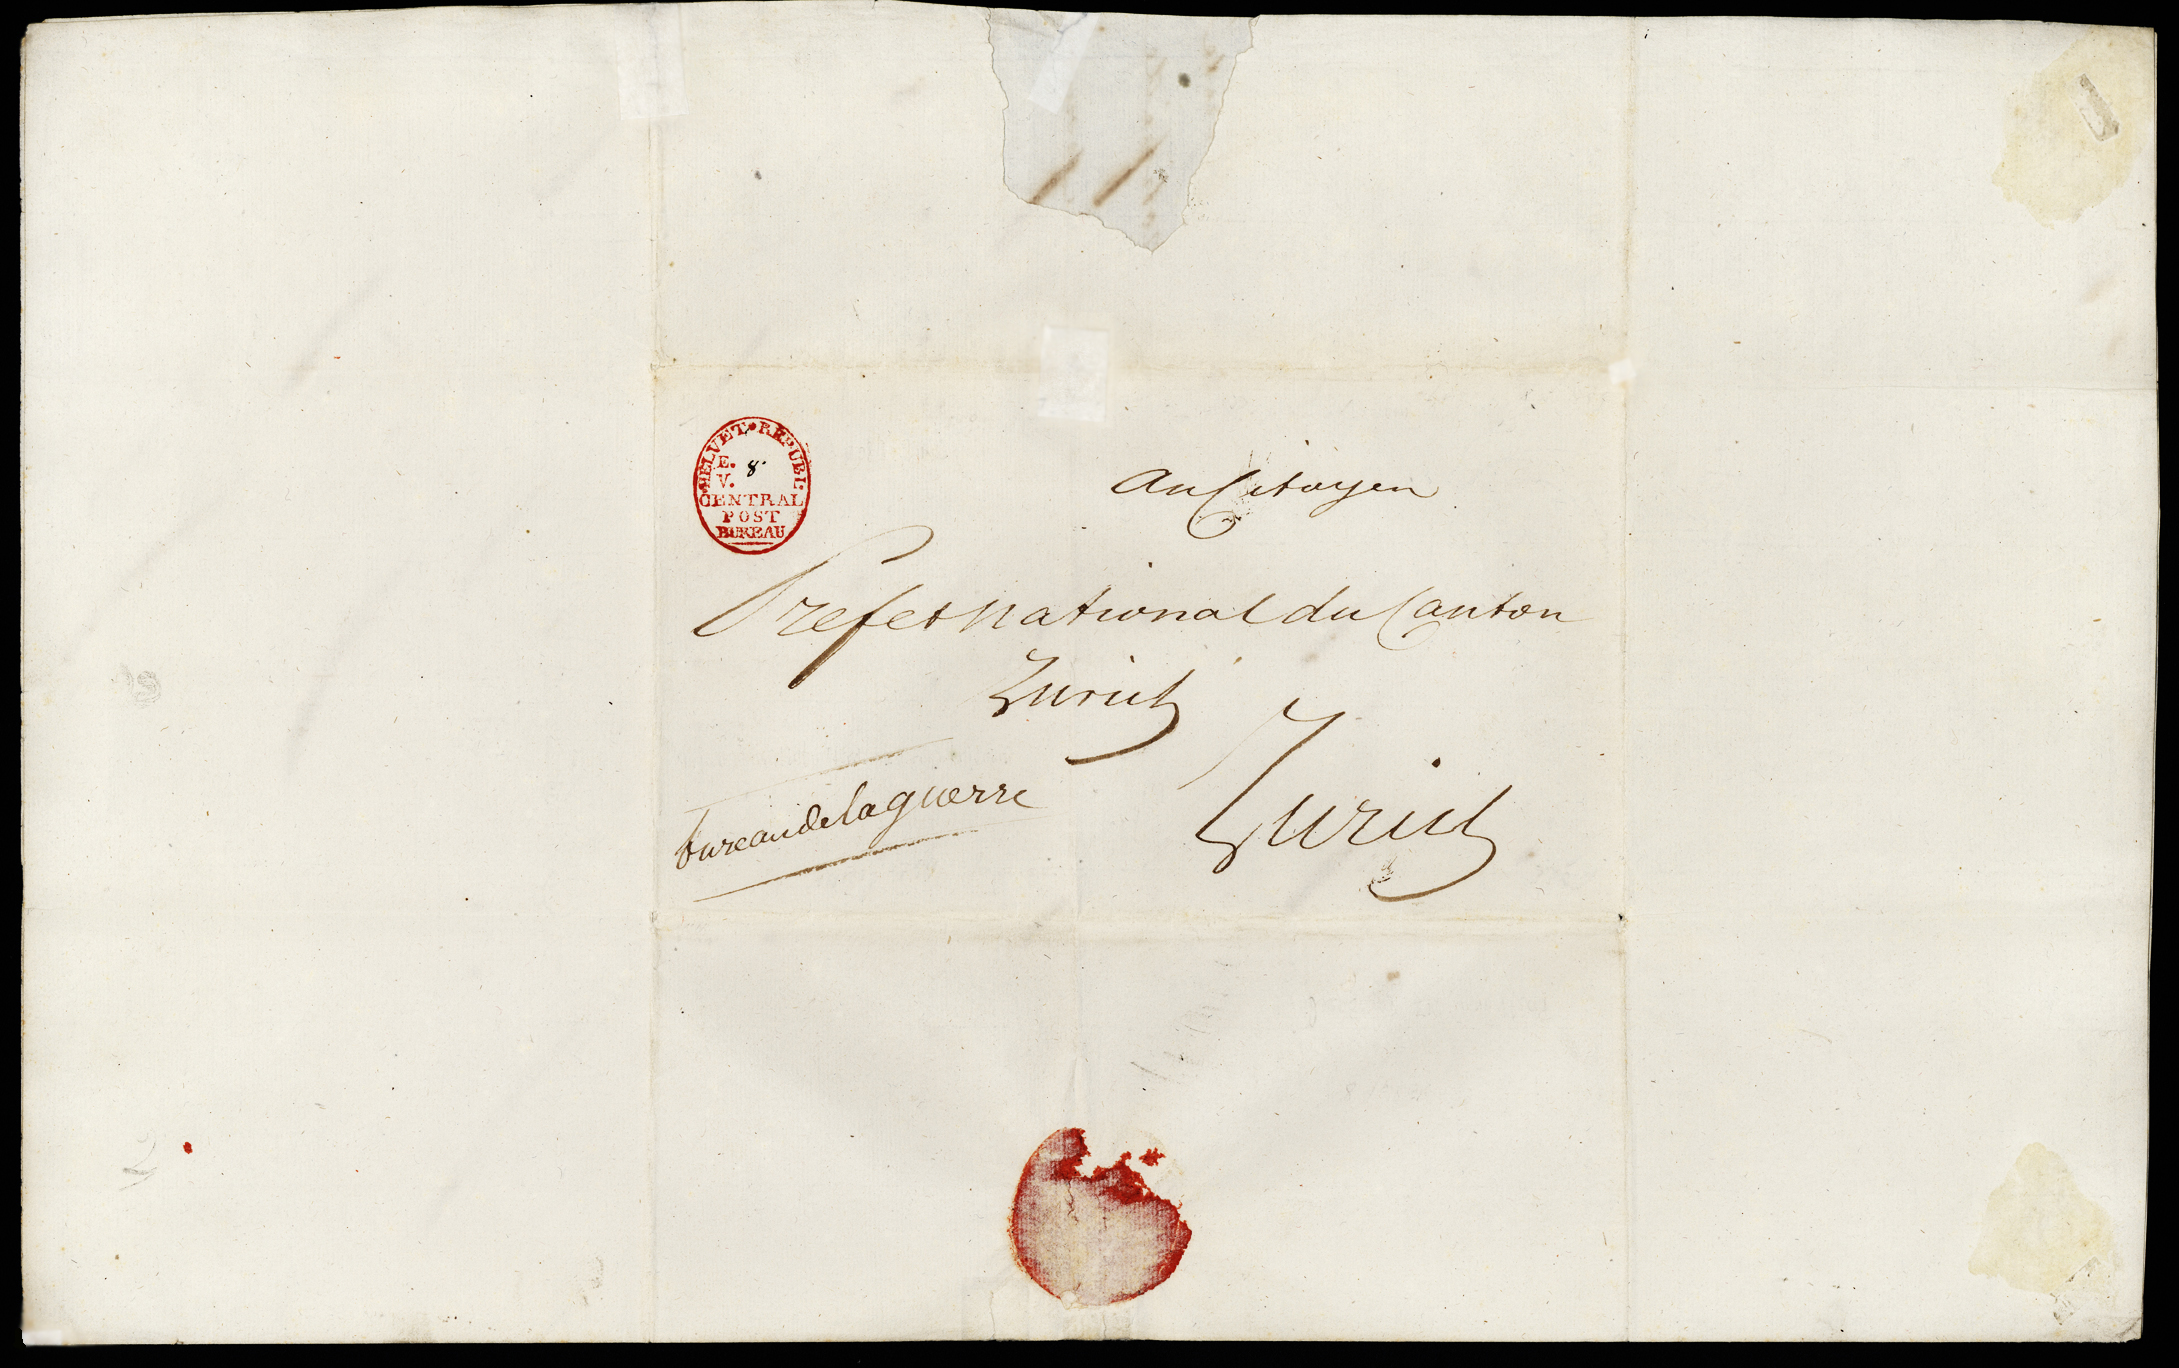 HELVET • REPUBL.
E. 8.
V.
CENTRAL
POST
BUREAU
au Citoyen
Prefet national du Canton
Zurich
Zurich
bureau de la guerre